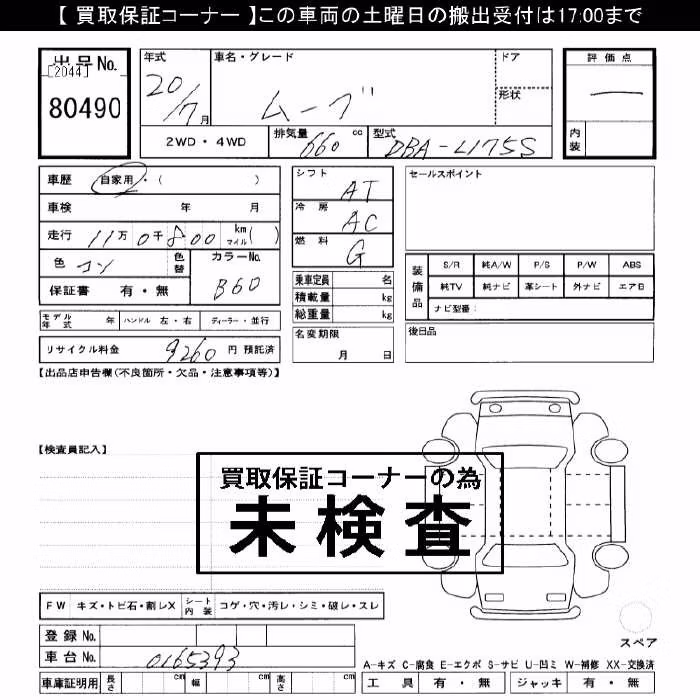 【 買取保証コーナー 】この車両の土曜日の搬出受付は17:00まで
出品No.
[2044]
80490
年式
20/7月
車名・グレード
ムーブ
ドア
形状
評価点
内装
2WD・4WD
排気量 660 cc
型式 DBA-L175S
車歴 自家用・( )
車検 年 月
走行 11万0千800 km マイル( )
色 コン
色替
カラーNo.
B60
保証書 有・無
モデル年式 年 ハンドル 左・右 ディーラー・並行
リサイクル料金 9260 円 預託済
シフト AT
冷房 AC
燃料 G
乗車定員 名
積載量 kg
総重量 kg
名変期限
月 日
セールスポイント
装備品
S/R 純A/W P/S P/W ABS
純TV 純ナビ 革シート 外ナビ エアB
ナビ型番:
後日品
【出品店申告欄(不良箇所・欠品・注意事項等)】
【検査員記入】
買取保証コーナーの為
未検査
FW キズ・トビ石・割レX シート内装 コゲ・穴・汚レ・シミ・破レ・スレ
登録No.
車台No. 0165393
車庫証明用 長さ cm 幅 cm 高さ cm
スペア
A-キズ C-腐食 E-エクボ S-サビ U-凹ミ W-補修 XX-交換済
工具 有・無 ジャッキ 有・無